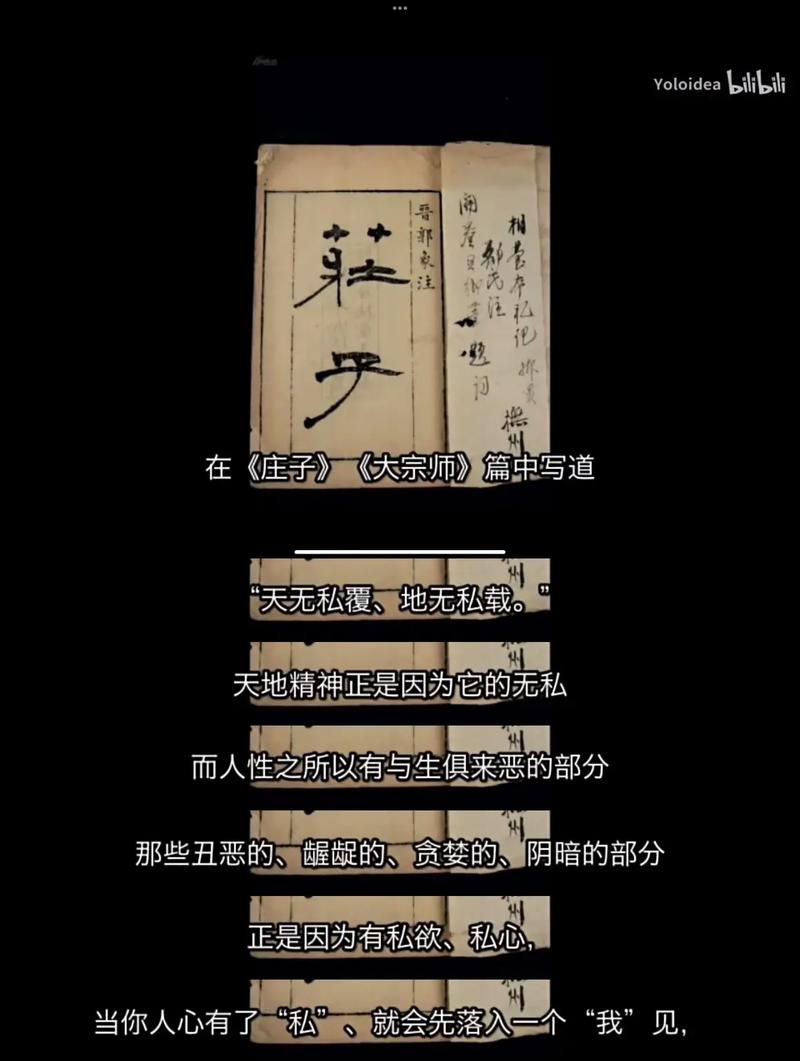 Yoloidea bilibili
晋郭象注
莊子
相臺本私记
鄭氏注
題词
撫州
在《庄子》《大宗师》篇中写道
“天无私覆、地无私载。”
天地精神正是因为它的无私
而人性之所以有与生俱来恶的部分
那些丑恶的、龌龊的、贪婪的、阴暗的部分
正是因为有私欲、私心，
当你人心有了“私”、就会先落入一个“我”见，